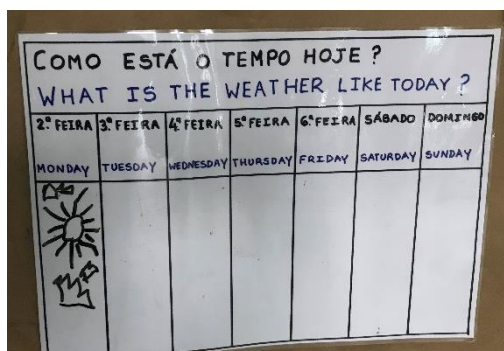 COMO ESTÁ O TEMPO HOJE?
WHAT IS THE WEATHER LIKE TODAY?
2.ª FEIRA 3.ª FEIRA 4.ª FEIRA 5.ª FEIRA 6.ª FEIRA SÁBADO DOMINGO
MONDAY TUESDAY WEDNESDAY THURSDAY FRIDAY SATURDAY SUNDAY